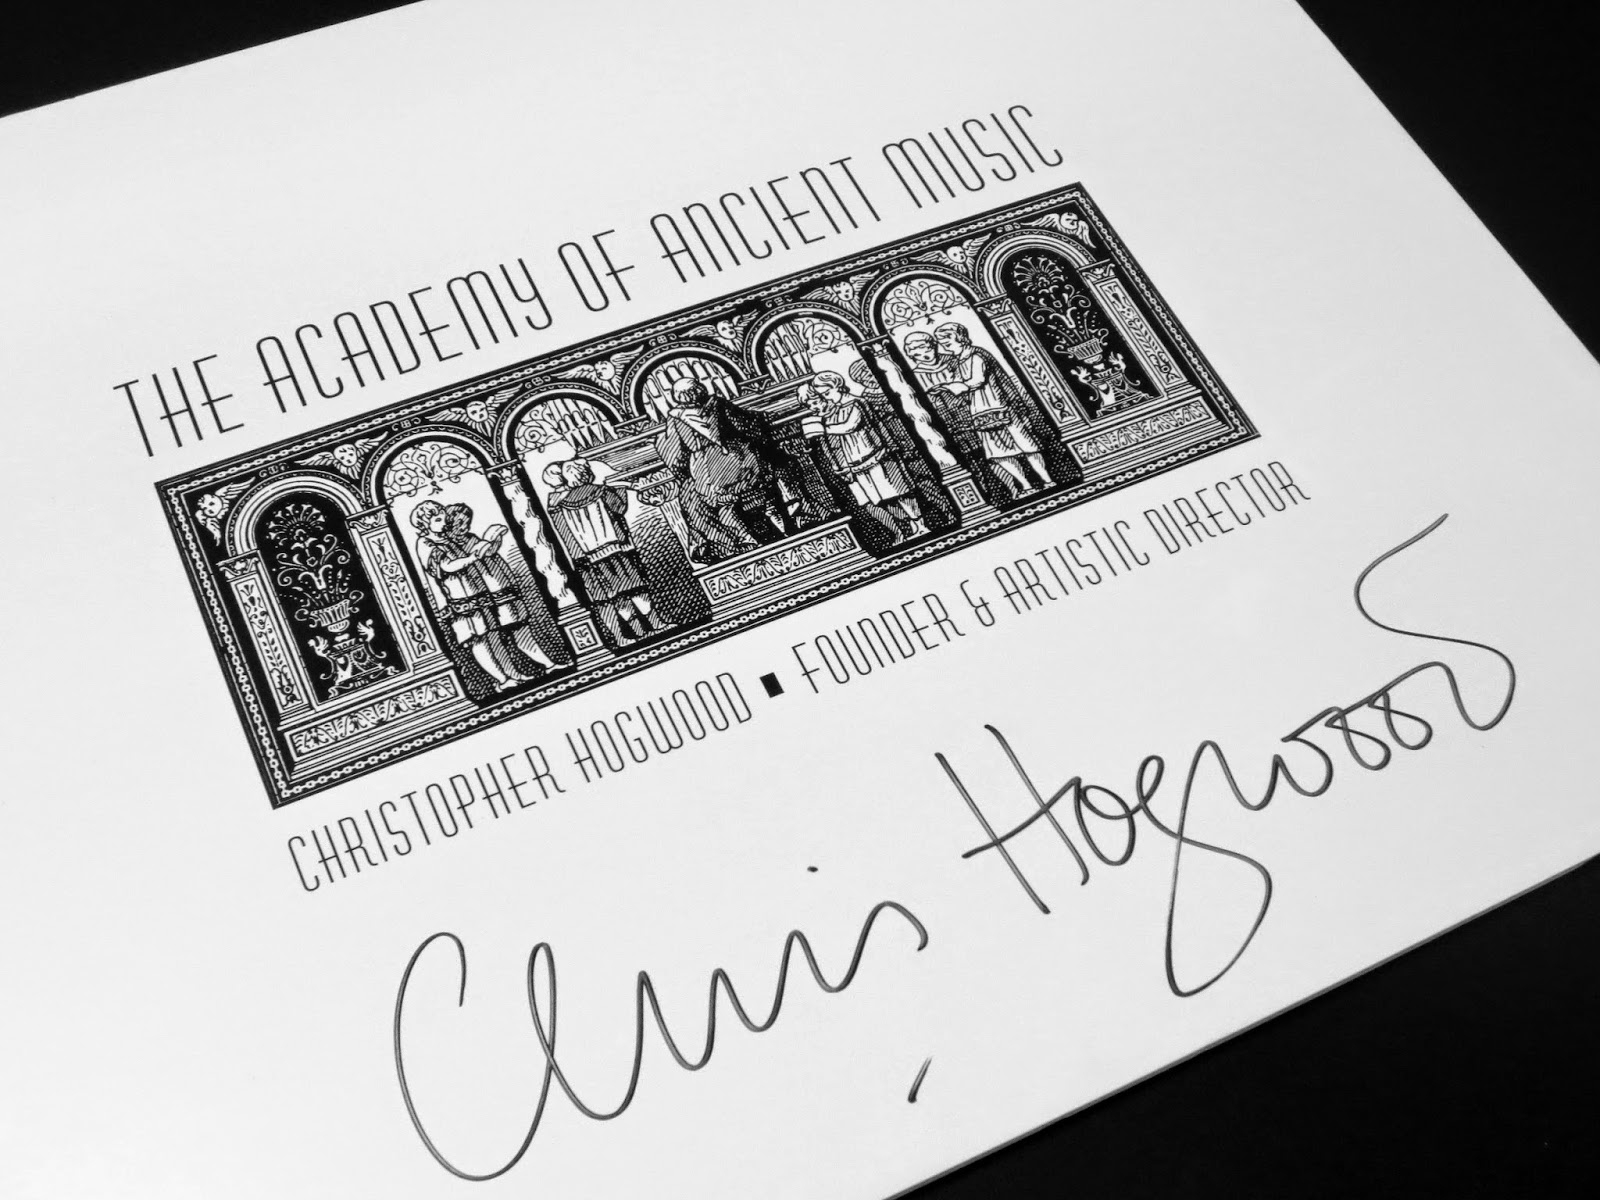 THE ACADEMY OF ANCIENT MUSIC
CHRISTOPHER HOGWOOD ▪ FOUNDER & ARTISTIC DIRECTOR
Chris Hogwood